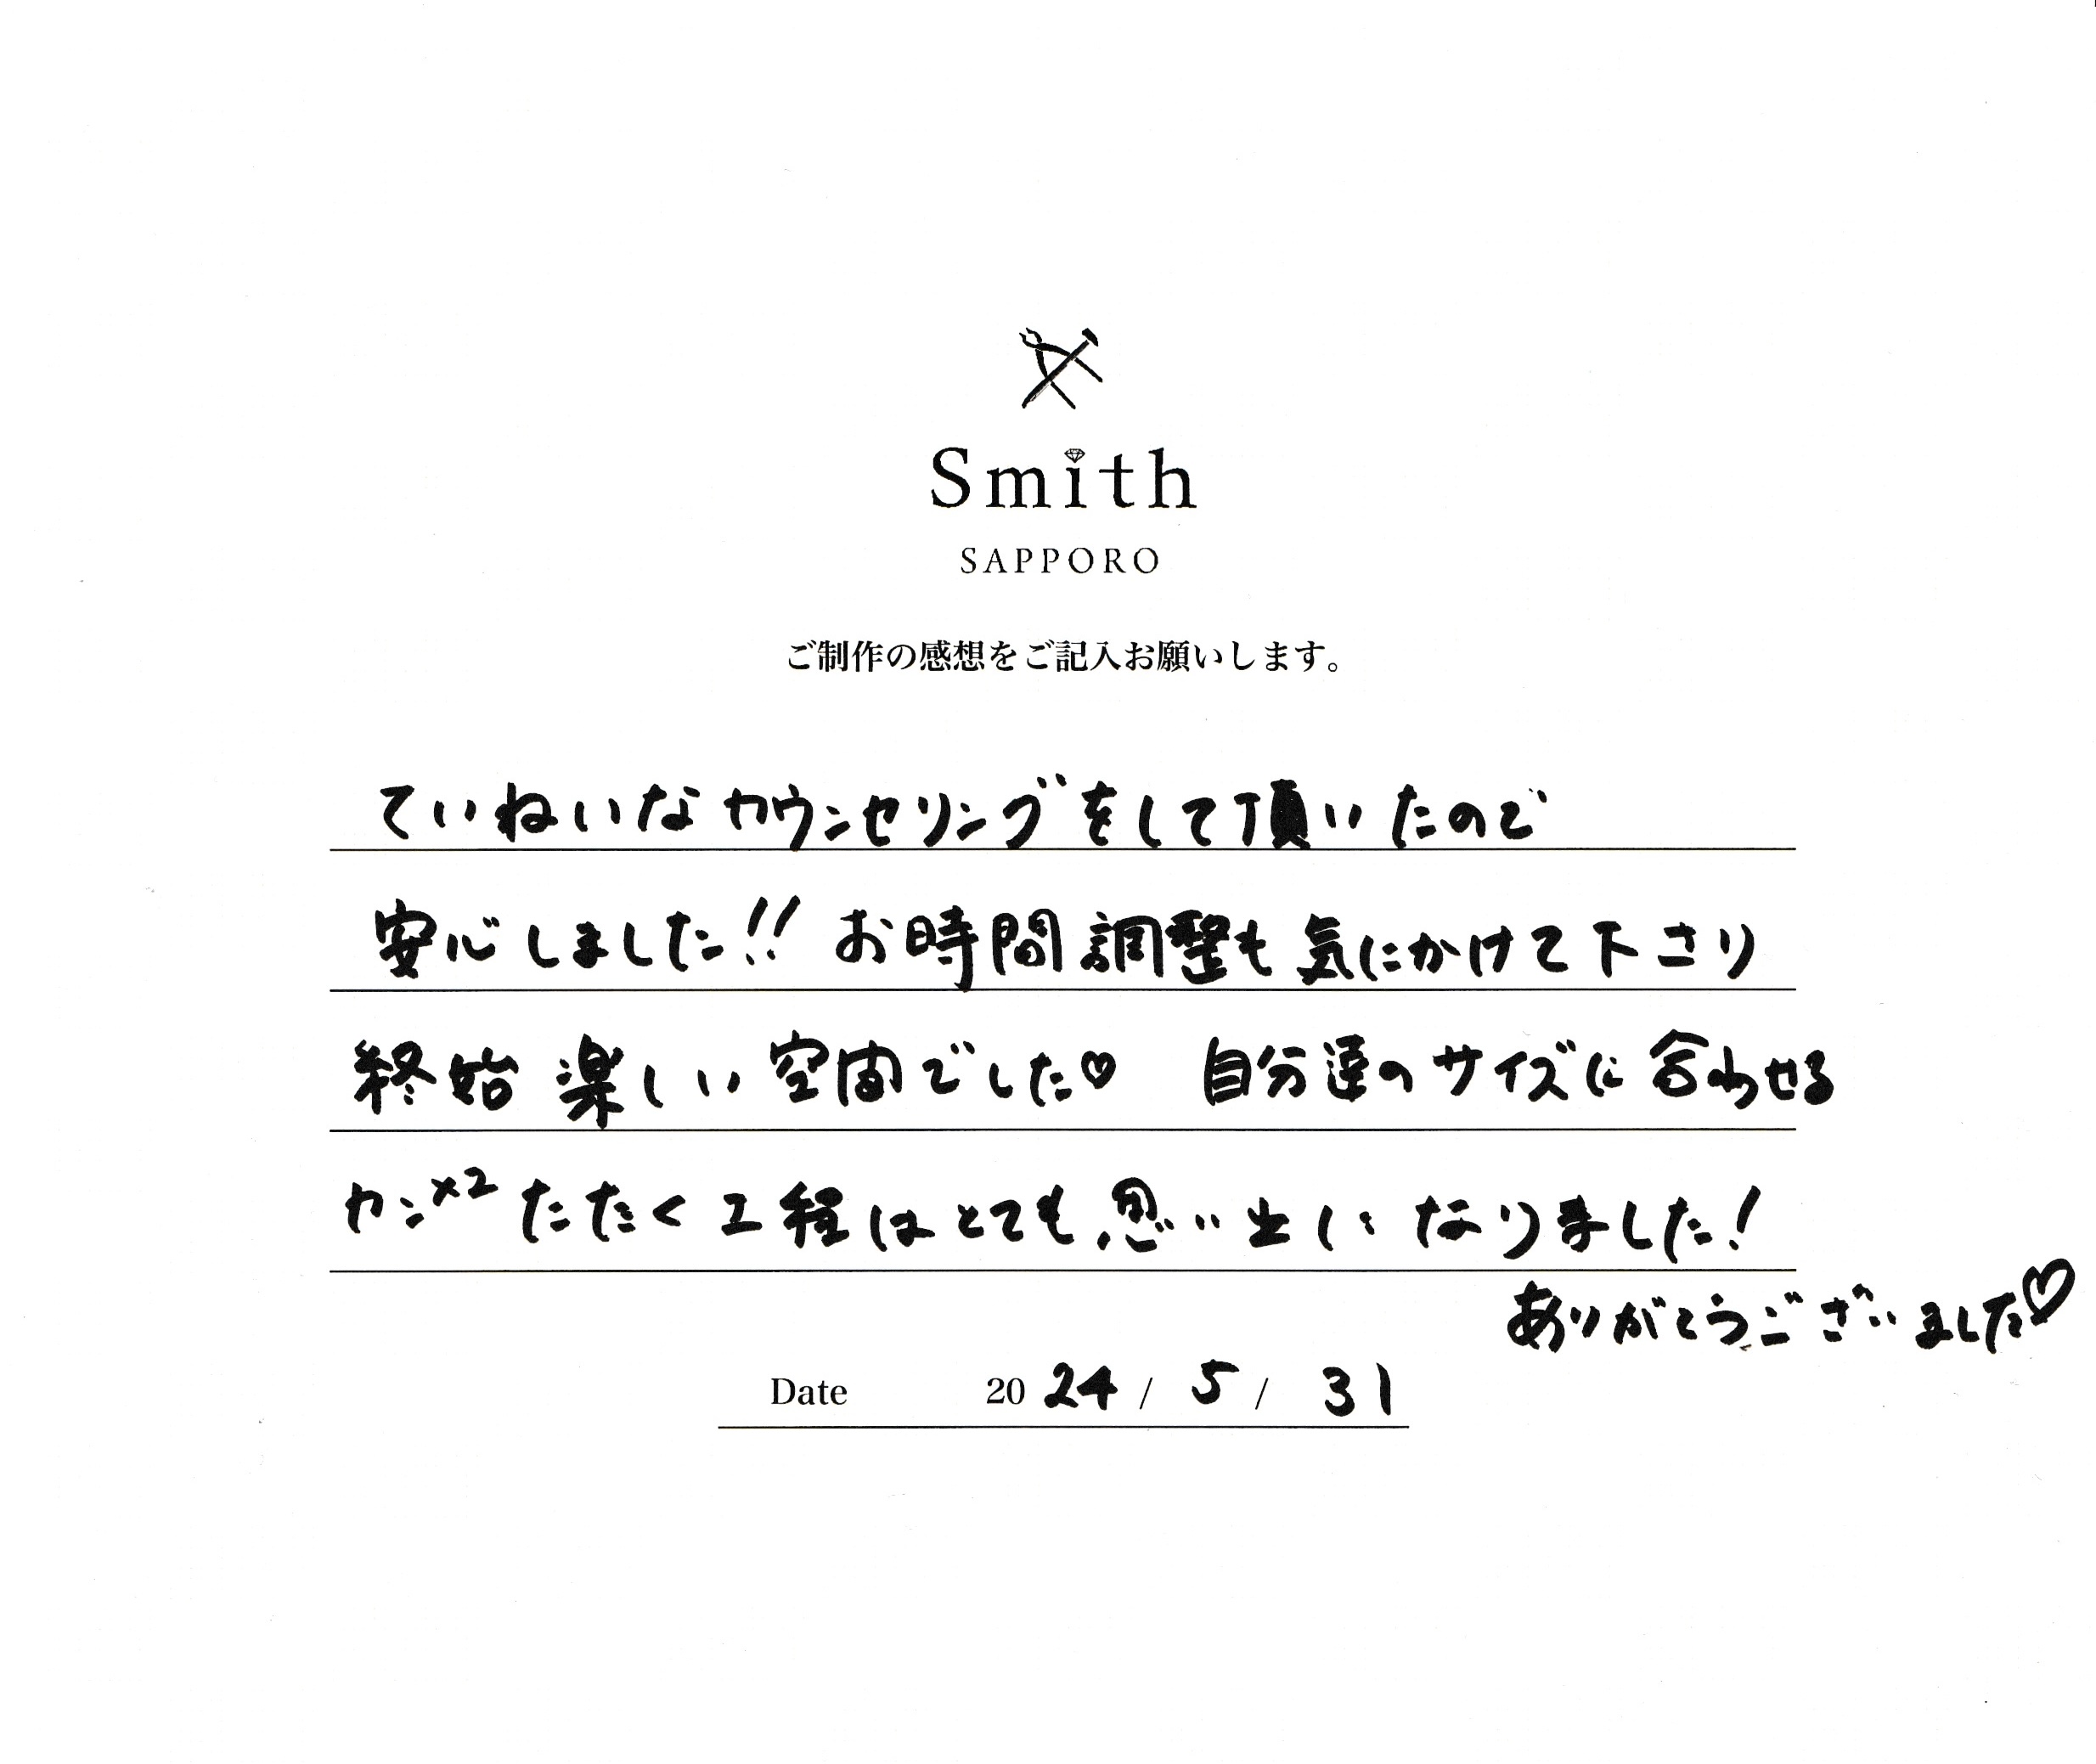 Smith
SAPPORO
ご制作の感想をご記入お願いします。
ていねいなカウンセリングをして頂いたので
安心しました!! お時間調整も気にかけて下さり
終始楽しい空間でした♡ 自分達のサイズに合わせる
カン×2 たたく工程はとても思い出になりました!
ありがとうございました♡
Date 2024 / 5 / 31